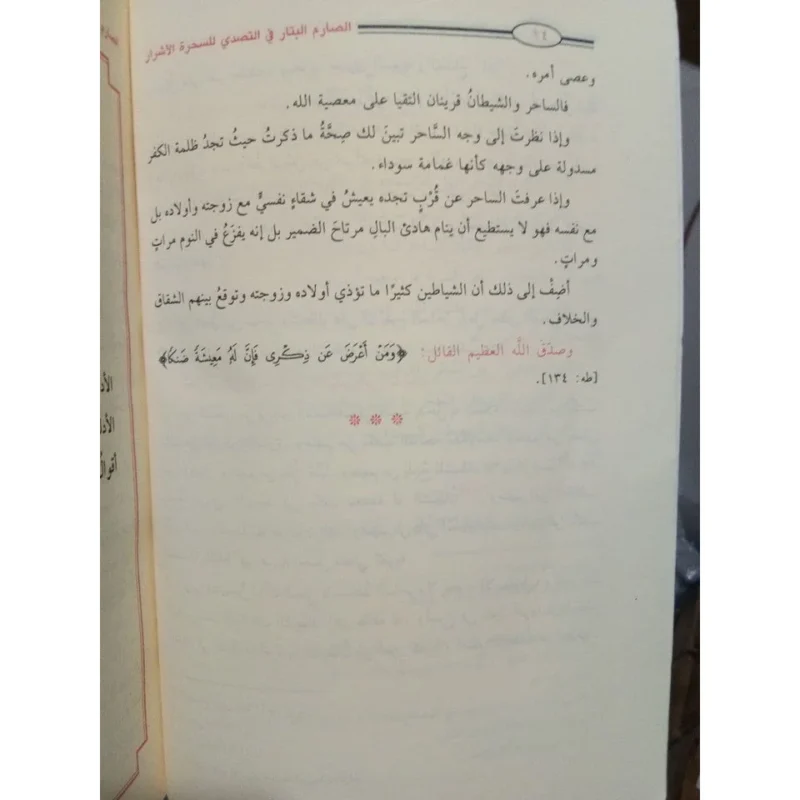 الصارم البتار في التصدي للسحرة الأشرار
١٤
وعصى أمره.
فالساحر والشيطانُ قرينان التقيا على معصية الله.
وإذا نظرتَ إلى وجه السَّاحر تبينَ لك صِحَّةُ ما ذكرتُ حيثُ تجدُ ظلمة الكفر
مسدولة على وجهه كأنها غمامة سوداء.
وإذا عرفتَ الساحر عن قُرْبٍ تجده يعيشُ في شقاءٍ نفسيٍّ مع زوجته وأولاده بل
مع نفسه فهو لا يستطيع أن ينام هادئ البالِ مرتاحَ الضمير بل إنه يفزَعُ في النوم مراتٍ
ومراتٍ.
أضِفْ إلى ذلك أن الشياطين كثيرًا ما تؤذي أولاده وزوجته وتوقعُ بينهم الشقاق
والخلاف.
وصدَقَ اللَّه العظيم القائل: ﴿وَمَنْ أَعْرَضَ عَن ذِكْرِى فَإِنَّ لَهُۥ مَعِيشَةً ضَنكًا﴾
[طه: ١٣٤].
الأد
الأدل
أقوال